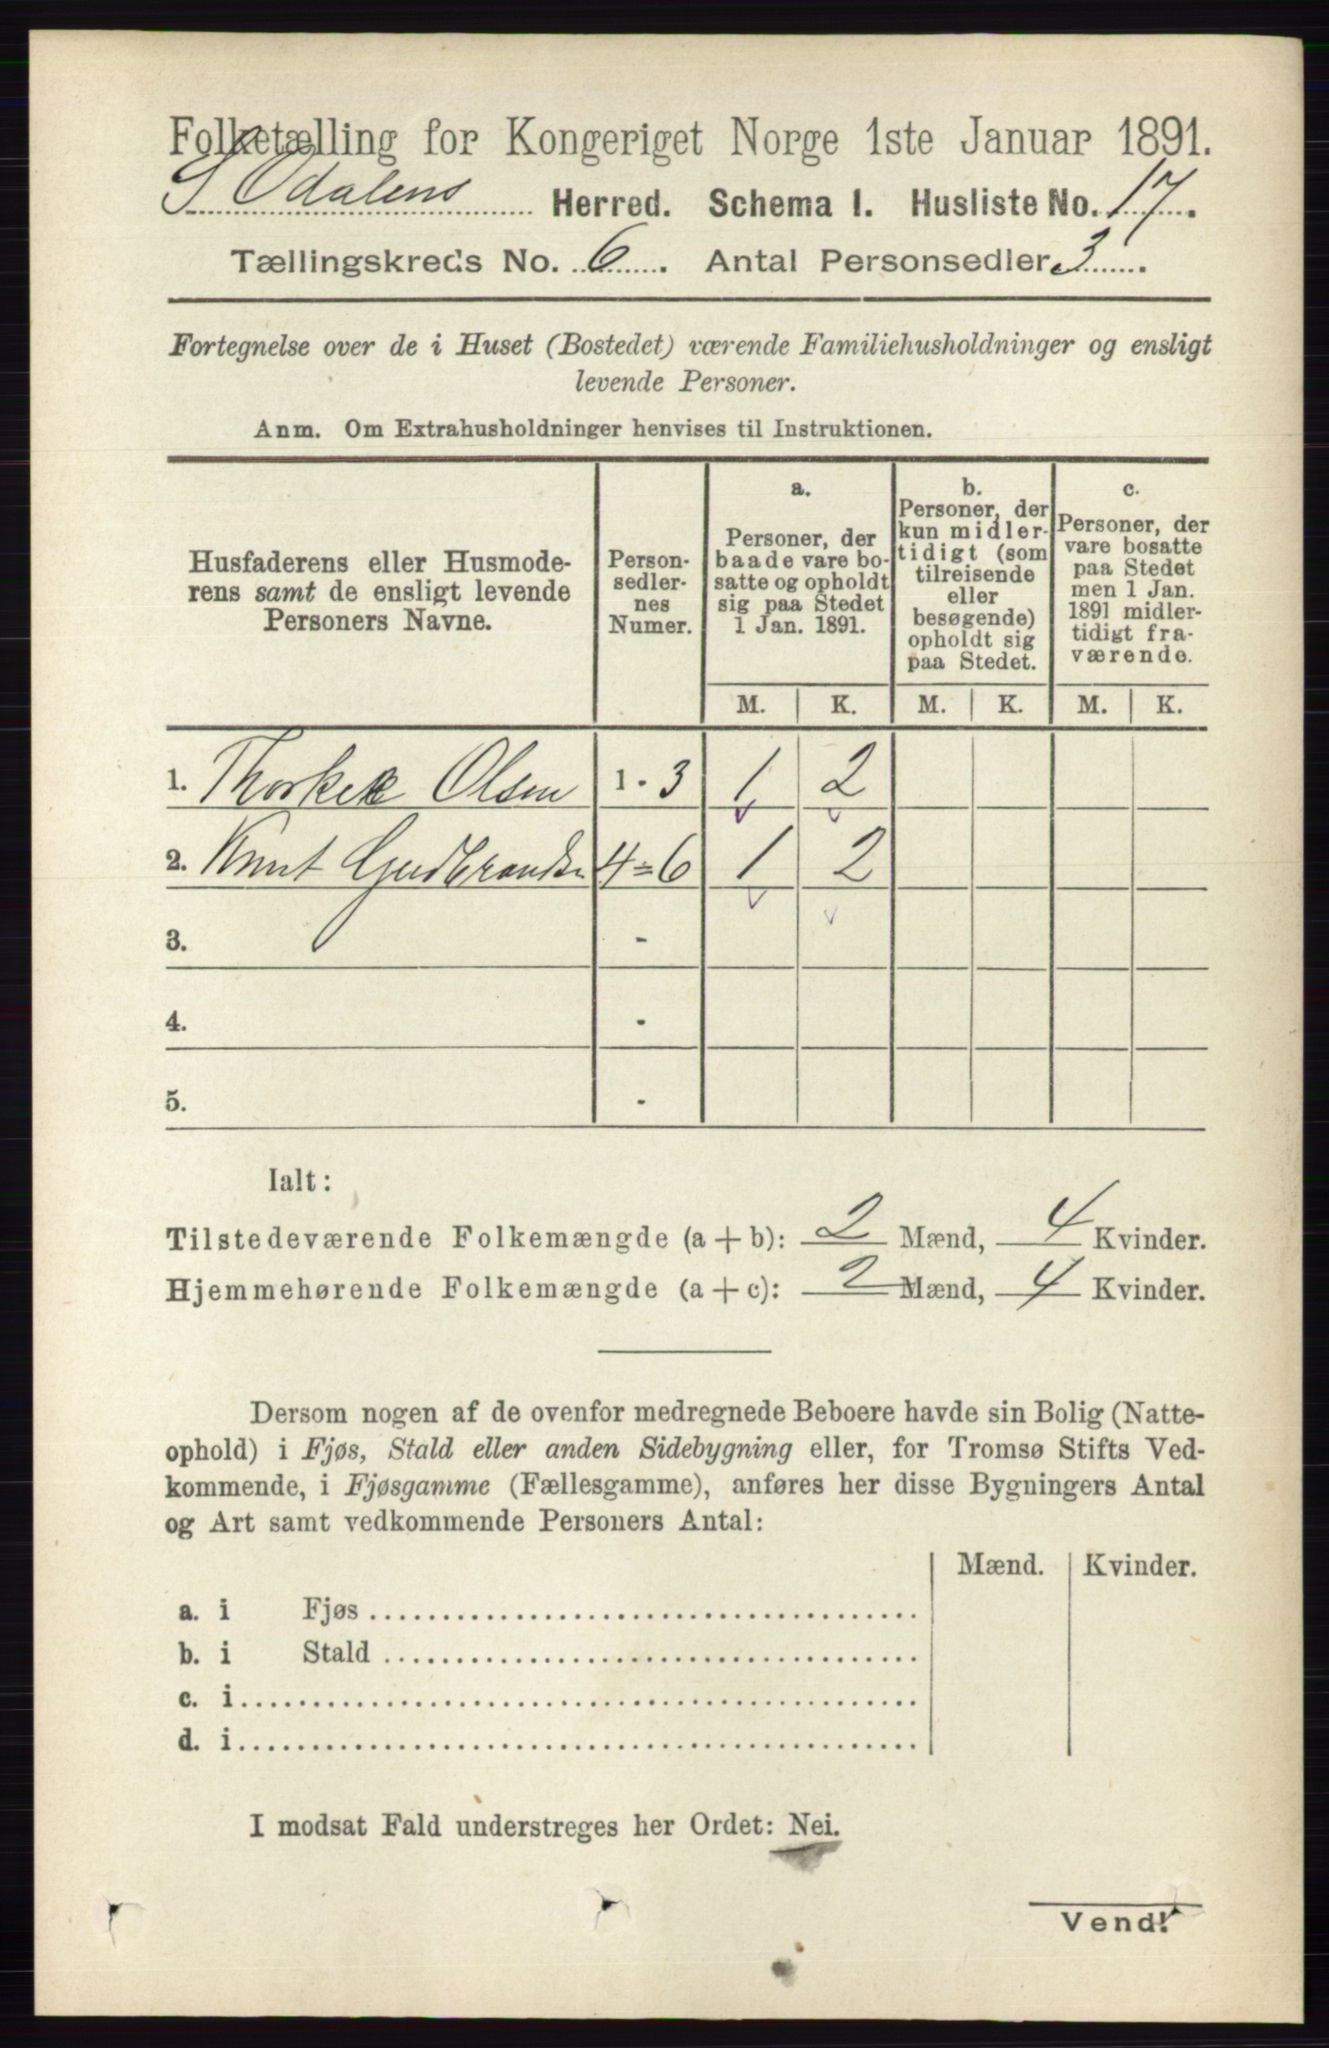 Folketælling for Kongeriget Norge 1ste Januar 1891.
S Odalens Herred. Schema I. Husliste No. 17.
Tællingskreds No. 6. Antal Personsedler 3.
Fortegnelse over de i Huset (Bostedet) værende Familiehusholdninger og ensligt
levende Personer.
Anm. Om Extrahusholdninger henvises til Instruktionen.
Husfaderens eller Husmode-
rens samt de ensligt levende
Personers Navne.
Person-
sedler-
nes
Numer.
a.
Personer, der
baade vare bo-
satte og opholdt
sig paa Stedet
1 Jan. 1891.
b.
Personer, der
kun midler-
tidigt (som
tilreisende
eller
besøgende)
opholdt sig
paa Stedet.
c.
Personer, der
vare bosatte
paa Stedet
men 1 Jan.
1891 midler-
tidigt fra-
værende.
M. K. M. K. M. K.
1. Olsen 1 - 3 1 2
2. Knut Gudbrandsn 4 = 6 1 2
3. -
4. -
5. -
Ialt:
Tilstedeværende Folkemængde (a + b): 2 Mænd, 4 Kvinder.
Hjemmehørende Folkemængde (a + c): 2 Mænd, 4 Kvinder.
Dersom nogen af de ovenfor medregnede Beboere havde sin Bolig (Natte-
ophold) i Fjøs, Stald eller anden Sidebygning eller, for Tromsø Stifts Ved-
kommende, i Fjøsgamme (Fællesgamme), anføres her disse Bygningers Antal
og Art samt vedkommende Personers Antal:
Mænd. Kvinder.
a. i Fjøs
b. i Stald
c. i
d. i
I modsat Fald understreges her Ordet: Nei.
Vend!